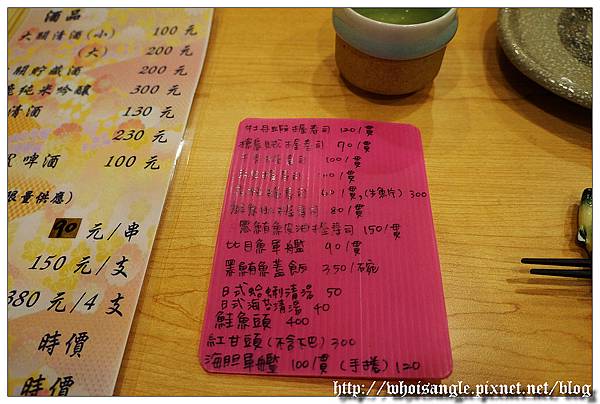 酒品
大關清酒(小) 100 元
(大) 200 元
200 元
純米吟釀 300 元
清酒 130 元
230 元
啤酒 100 元
限量供應)
90 元/串
150 元/支
380 元/4支
時價
時價
牡丹蝦握壽司 120/貫
握壽司 90/貫
握壽司 100/貫
握壽司
握壽司 (生魚片) 300
握壽司 80/貫
黑鮪魚 油握壽司 150/貫
比目魚軍艦 90/貫
黑鮪魚蓋飯 350/碗
日式蛤蜊清湯 50
日式海苔清湯 40
鮭魚頭 400
紅甘頭(不含下巴) 300
海胆軍艦 100/貫 (手捲) 120
http://whoisangle.pixnet.net/blog